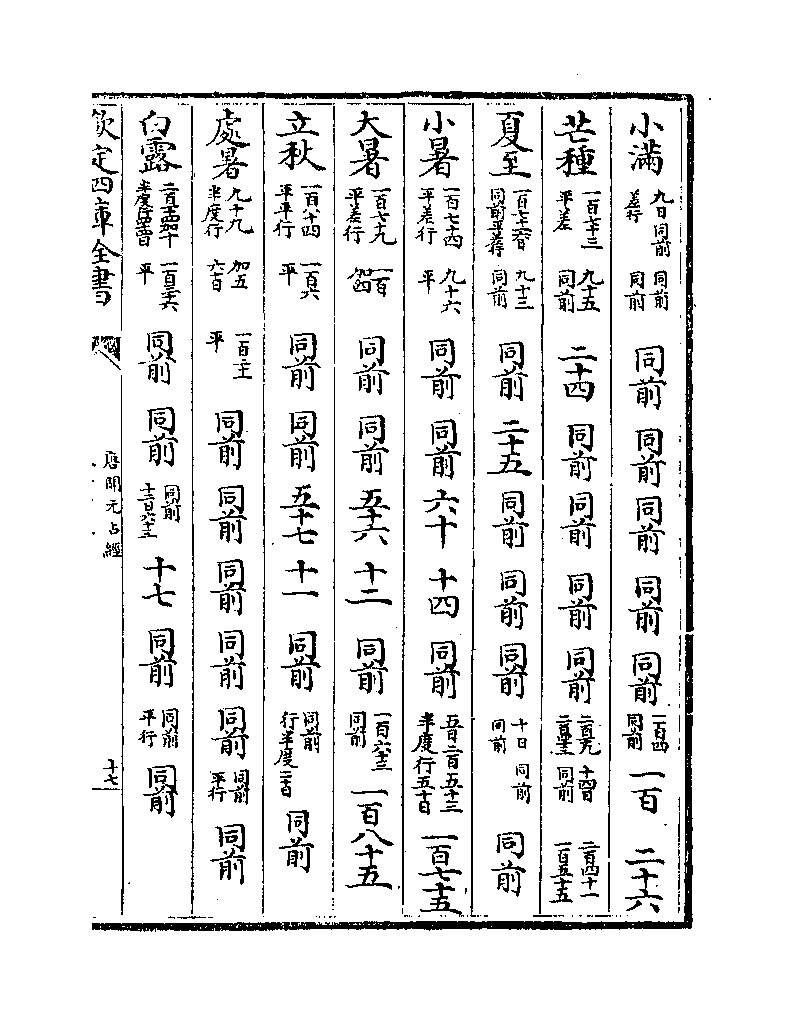 小滿 九日同前差行 同前同前 同前 同前 同前 同前 同前 一百四同前 一百 二十六
芒種 一百七十三平差 九五同前 二十四 同前 同前 同前 同前 十四日同前 二百四十一一百五十五
夏至 同前 九十三同前 同前 二十五 同前 同前 同前 十日同前 同前 同前
小暑 一百七十四平差行 九十六平 同前 同前 六十 十四 同前 五日二百五十三半度行五十日 一百七十五
大暑 一百七十九平差行 一百 同前 同前 五十六 十二 同前 一百六十三同前 一百八十五
立秋 一百八十四平平行 一百六平 同前 同前 五十七 十一 同前 同前行半度 同前
處暑 九十九半度行 加五六百 平 同前 同前 同前 同前 同前 同前平行 同前
白露 平 同前 同前 同前 十七 同前 同前平行 同前
欽定四庫全書 唐開元占經 十七